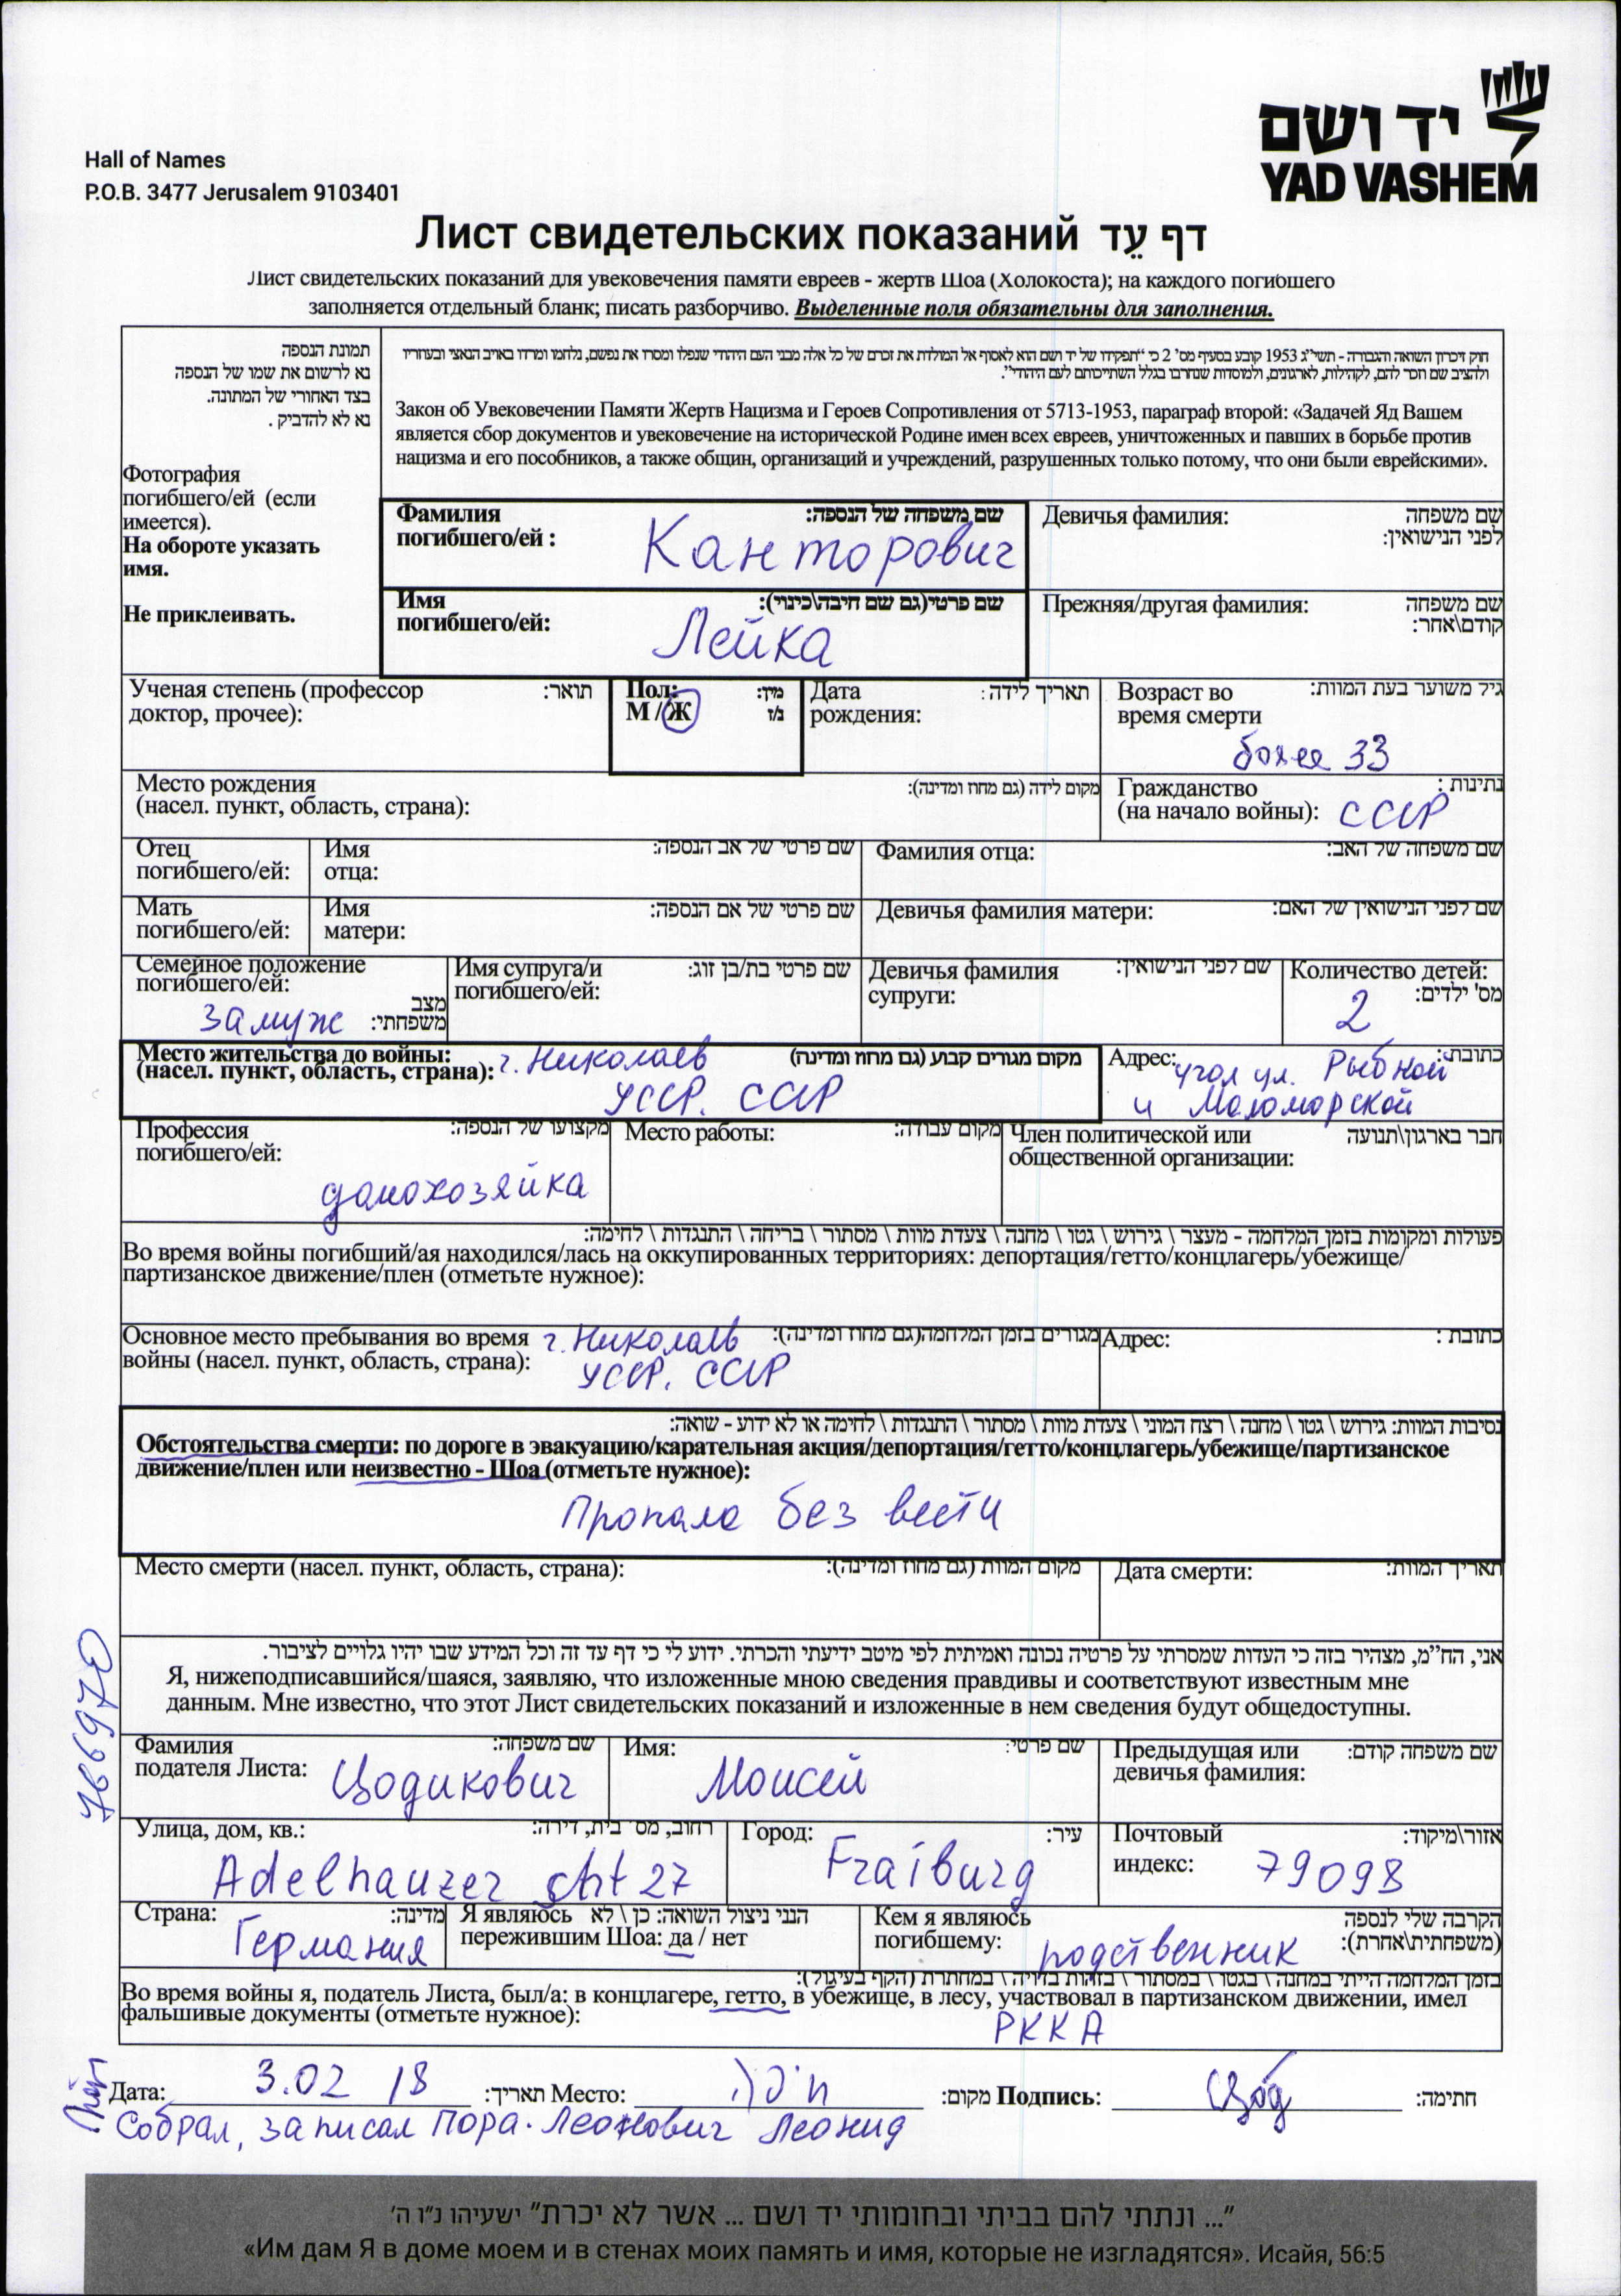 יד ושם
YAD VASHEM
Hall of Names
P.O.B. 3477 Jerusalem 9103401
Лист свидетельских показаний דף עֵד
Лист свидетельских показаний для увековечения памяти евреев - жертв Шоа (Холокоста); на каждого погибшего
заполняется отдельный бланк; писать разборчиво. Выделенные поля обязательны для заполнения.
תמונת הנספה
נא לרשום את שמו של הנספה
בצד האחורי של התמונה.
נא לא להדביק .
Фотография
погибшего/ей (если
имеется).
На обороте указать
имя.
Не приклеивать.
חוק זיכרון השואה והגבורה - תשי"ג 1953 קובע בסעיף מס' 2 כי "תפקידו של יד ושם הוא לאסוף אל המולדת את זכרם של כל אלה מבני העם היהודי שנפלו ומסרו את נפשם, נלחמו ומרדו באויב הנאצי ובעוזריו
ולהציב שם וזכר להם, לקהילות, לארגונים, ולמוסדות שנחרבו בגלל השתייכותם לעם היהודי".
Закон об Увековечении Памяти Жертв Нацизма и Героев Сопротивления от 5713-1953, параграф второй: «Задачей Яд Вашем
является сбор документов и увековечение на исторической Родине имен всех евреев, уничтоженных и павших в борьбе против
нацизма и его пособников, а также общин, организаций и учреждений, разрушенных только потому, что они были еврейскими».
Фамилия погибшего/ей : שם משפחה של הנספה:
Канторович
Девичья фамилия: שם משפחה לפני הנישואין:
Имя погибшего/ей: שם פרטי(גם שם חיבה\כינוי):
Лейка
Прежняя/другая фамилия: שם משפחה קודם\אחר:
Ученая степень (профессор доктор, прочее): תואר:
Пол: מין:
М / Ж ז/נ
Дата рождения: תאריך לידה:
Возраст во время смерти גיל משוער בעת המוות:
более 33
Место рождения (насел. пункт, область, страна): מקום לידה (גם מחוז ומדינה):
Гражданство (на начало войны): נתינות :
СССР
Отец погибшего/ей:
Имя отца: שם פרטי של אב הנספה:
Фамилия отца: שם משפחה של האב:
Мать погибшего/ей:
Имя матери: שם פרטי של אם הנספה:
Девичья фамилия матери: שם לפני הנישואין של האם:
Семейное положение погибшего/ей: מצב משפחתי:
замуж
Имя супруга/и погибшего/ей: שם פרטי בת/בן זוג:
Девичья фамилия супруги: שם לפני הנישואין:
Количество детей: מס' ילדים:
2
Место жительства до войны: (насел. пункт, область, страна): מקום מגורים קבוע (גם מחוז ומדינה)
г. Николаев
УССР. СССР
Адрес: כתובת:
угол ул. Рыбной
и Маломорской
Профессия погибшего/ей: מקצועו של הנספה:
домохозяйка
Место работы: מקום עבודה:
Член политической или общественной организации: חבר בארגון\תנועה
פעולות ומקומות בזמן המלחמה - מעצר \ גירוש \ גטו \ מחנה \ צעדת מוות \ מסתור \ בריחה \ התנגדות \ לחימה:
Во время войны погибший/ая находился/лась на оккупированных территориях: депортация/гетто/концлагерь/убежище/
партизанское движение/плен (отметьте нужное):
Основное место пребывания во время войны (насел. пункт, область, страна): מגורים בזמן המלחמה(גם מחוז ומדינה):
г. Николаев
УССР. СССР
Адрес: כתובת :
נסיבות המוות: גירוש \ גטו \ מחנה \ רצח המוני \ צעדת מוות \ מסתור \ התנגדות \ לחימה או לא ידוע - שואה:
Обстоятельства смерти: по дороге в эвакуацию/карательная акция/депортация/гетто/концлагерь/убежище/партизанское
движение/плен или неизвестно - Шоа (отметьте нужное):
Пропала без вести
Место смерти (насел. пункт, область, страна): מקום המוות (גם מחוז ומדינה):
Дата смерти: תאריך המוות:
אני, הח"מ, מצהיר בזה כי העדות שמסרתי על פרטיה נכונה ואמיתית לפי מיטב ידיעתי והכרתי. ידוע לי כי דף עד זה וכל המידע שבו יהיו גלויים לציבור.
Я, нижеподписавшийся/шаяся, заявляю, что изложенные мною сведения правдивы и соответствуют известным мне
данным. Мне известно, что этот Лист свидетельских показаний и изложенные в нем сведения будут общедоступны.
Фамилия подателя Листа: שם משפחה:
Цодикович
Имя: שם פרטי:
Моисей
Предыдущая или девичья фамилия: שם משפחה קודם:
Улица, дом, кв.: רחוב, מס' בית, דירה:
Adelhauzer cht 27
Город: עיר:
Fraiburg
Почтовый индекс: אזור\מיקוד:
79098
Страна: מדינה:
Германия
Я являюсь הנני ניצול השואה: כן \ לא
пережившим Шоа: да / нет
Кем я являюсь погибшему: הקרבה שלי לנספה (משפחתית\אחרת):
родственник
בזמן המלחמה הייתי במחנה \ בגטו \ במסתור \ בזהות בדויה \ במחתרת (הקף בעיגול):
Во время войны я, податель Листа, был/а: в концлагере, гетто, в убежище, в лесу, участвовал в партизанском движении, имел
фальшивые документы (отметьте нужное):
РККА
Дата: 3.02 18 תאריך: Место: מקום: Подпись: Цод חתימה:
Собрал, записал Пора-Леонович Леонид
"... ונתתי להם בביתי ובחומותי יד ושם ... אשר לא יכרת" ישעיהו נ"ו ה'
«Им дам Я в доме моем и в стенах моих память и имя, которые не изгладятся». Исайя, 56:5